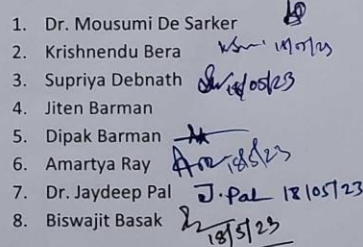 1. Dr. Mousumi De Sarker
2. Krishnendu Bera 18/05/23
3. Supriya Debnath 18/05/23
4. Jiten Barman
5. Dipak Barman
6. Amartya Ray 18/5/23
7. Dr. Jaydeep Pal J. Pal 18/05/23
8. Biswajit Basak 18/5/23